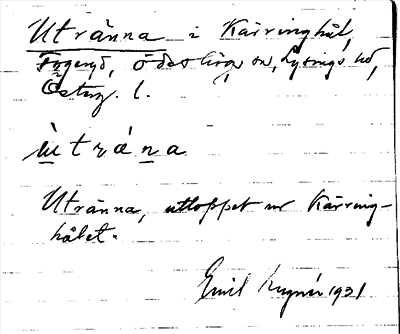 Utränna i Kärringhål,
ödeshög sn, Lysings hd,
Österg. l.
ùtrána
Utränna, utloppet ur Kärring-
hålet.
Emil 1931